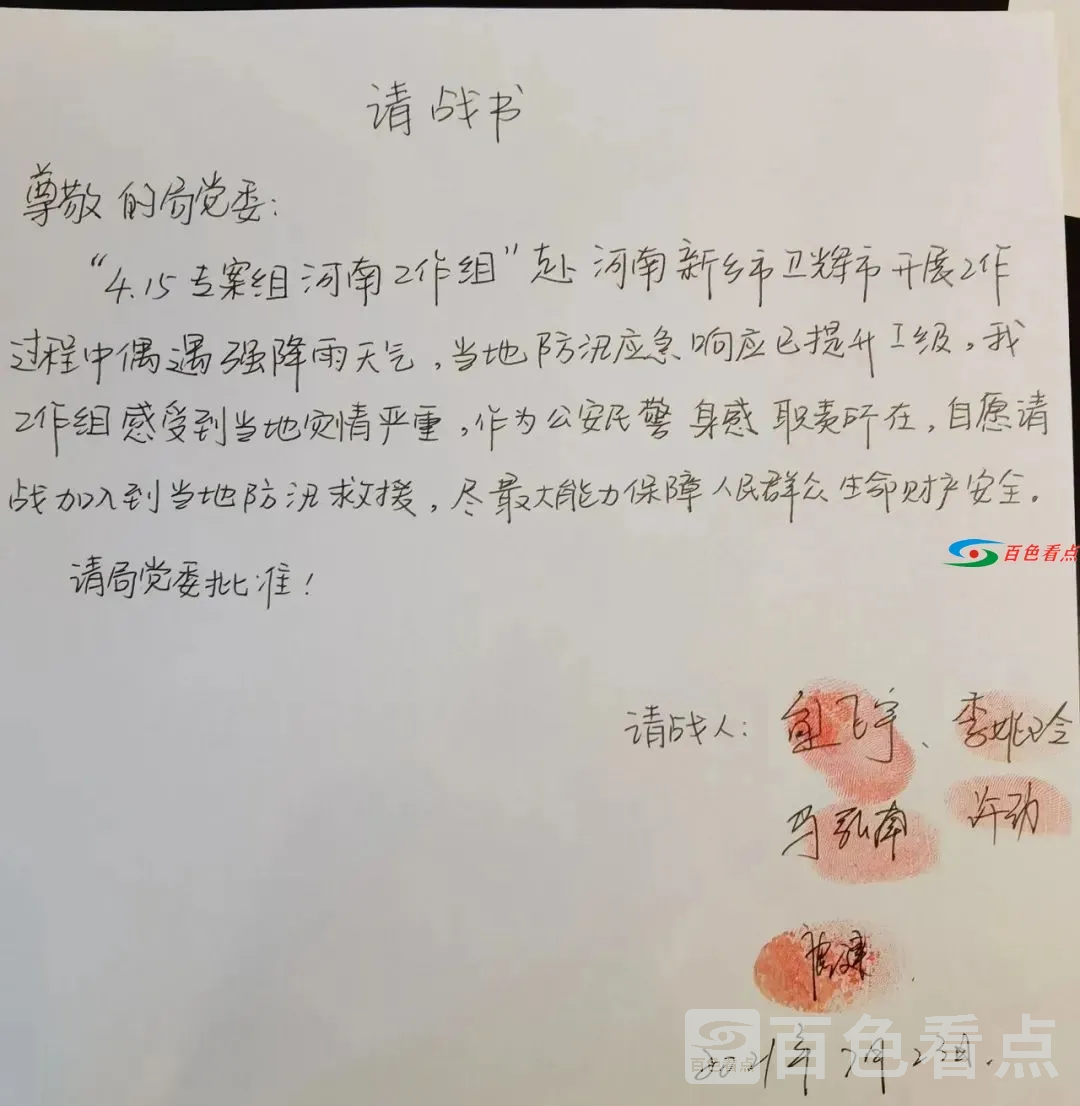 请战书
尊敬的局党委：
“4.15专案组河南工作组”赴河南新乡市卫辉市开展工作
过程中偶遇强降雨天气，当地防汛应急响应已提升I级，我
工作组感受到当地灾情严重，作为公安民警身感职责所在，自愿请
战加入到当地防汛救援，尽最大能力保障人民群众生命财产安全。
百色看点
请局党委批准！
请战人：飞宇、李姚玲
马弘南 许劲
健
百色看点
百色看点
2021年7月23日.